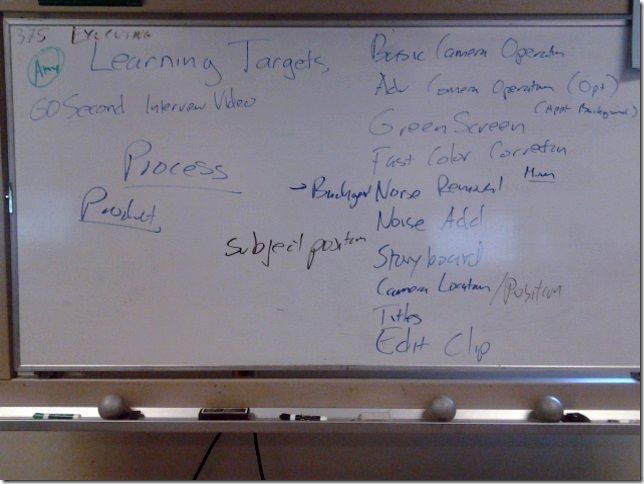 375 EXCITING
Amy
Learning Targets
60 Second Interview Video
Process
Product
subject position
Basic Camera Operation
Adv Camera Operation (Opt)
Green Screen
Fast Color Correction
→ Noise Removal
Noise Add
Storyboard
Camera Location / Position
Titles
Edit Clip